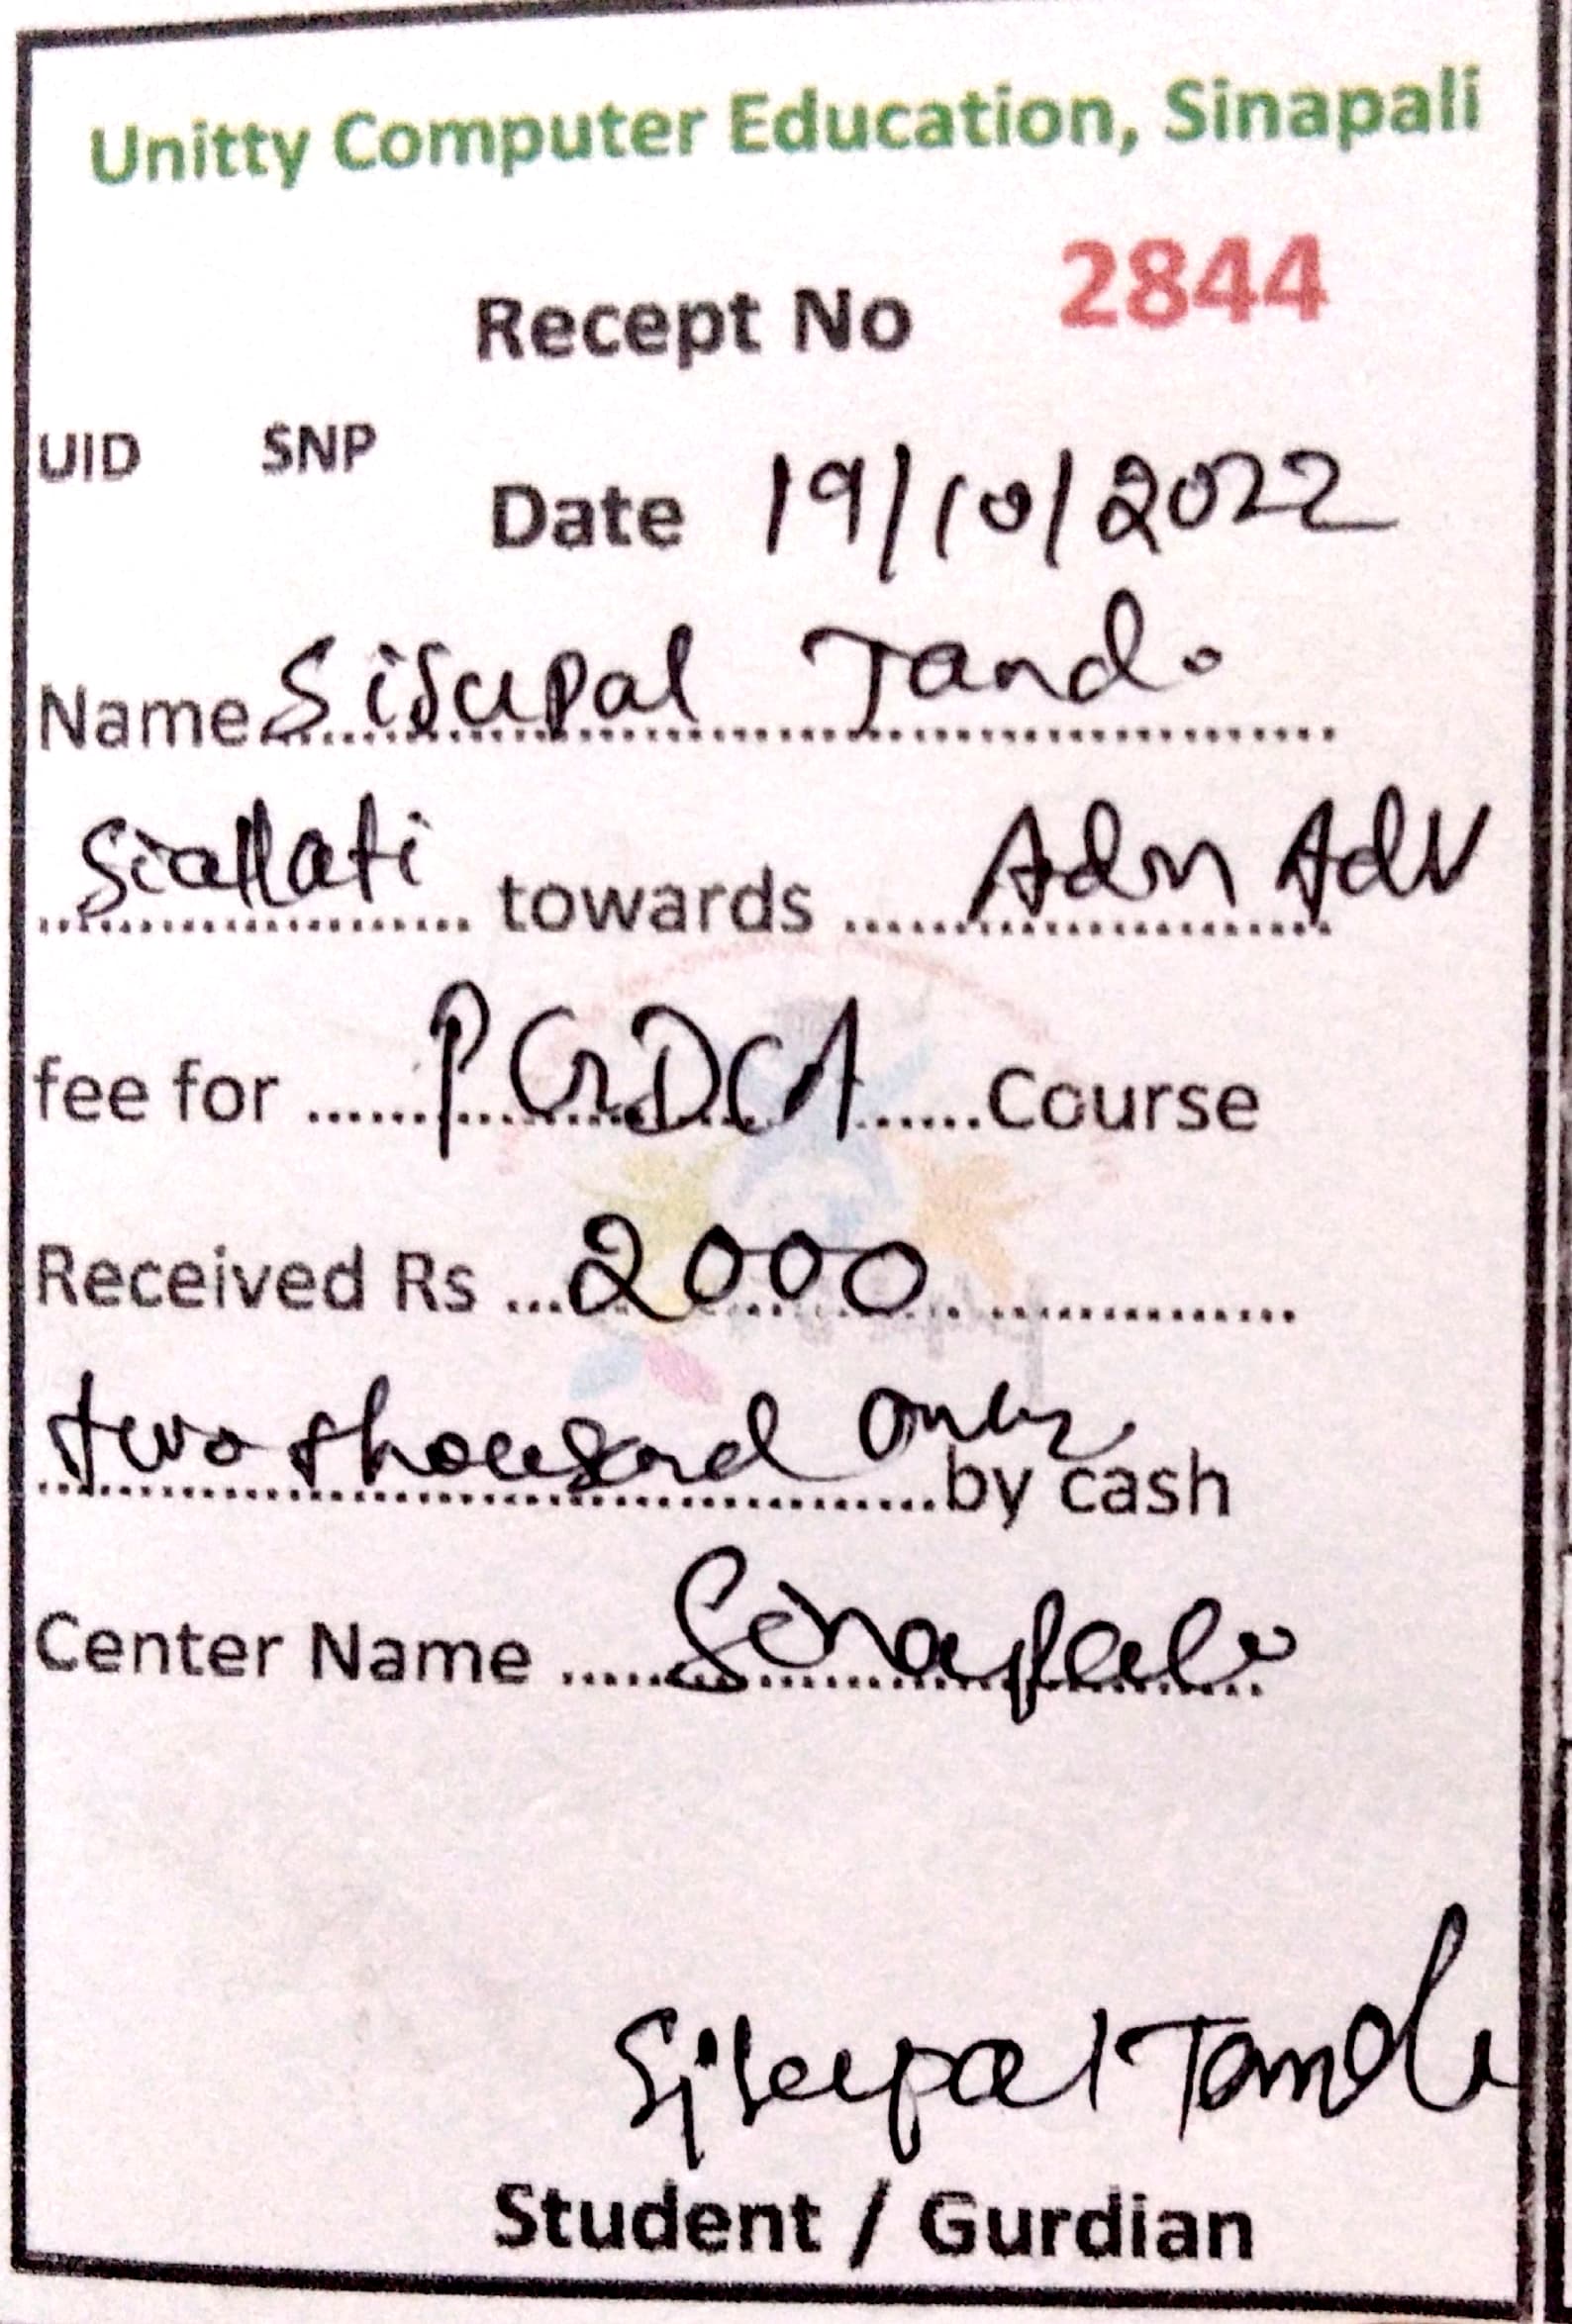 Unitty Computer Education, Sinapali
Recept No 2844
UID SNP
Date 19/10/2022
Name Sisupal Tandi
Siallati towards Adm Adv
fee for PGDCA Course
Received Rs 2000
two thousand only by cash
Center Name Sinapali
Sisupal Tandi
Student / Gurdian